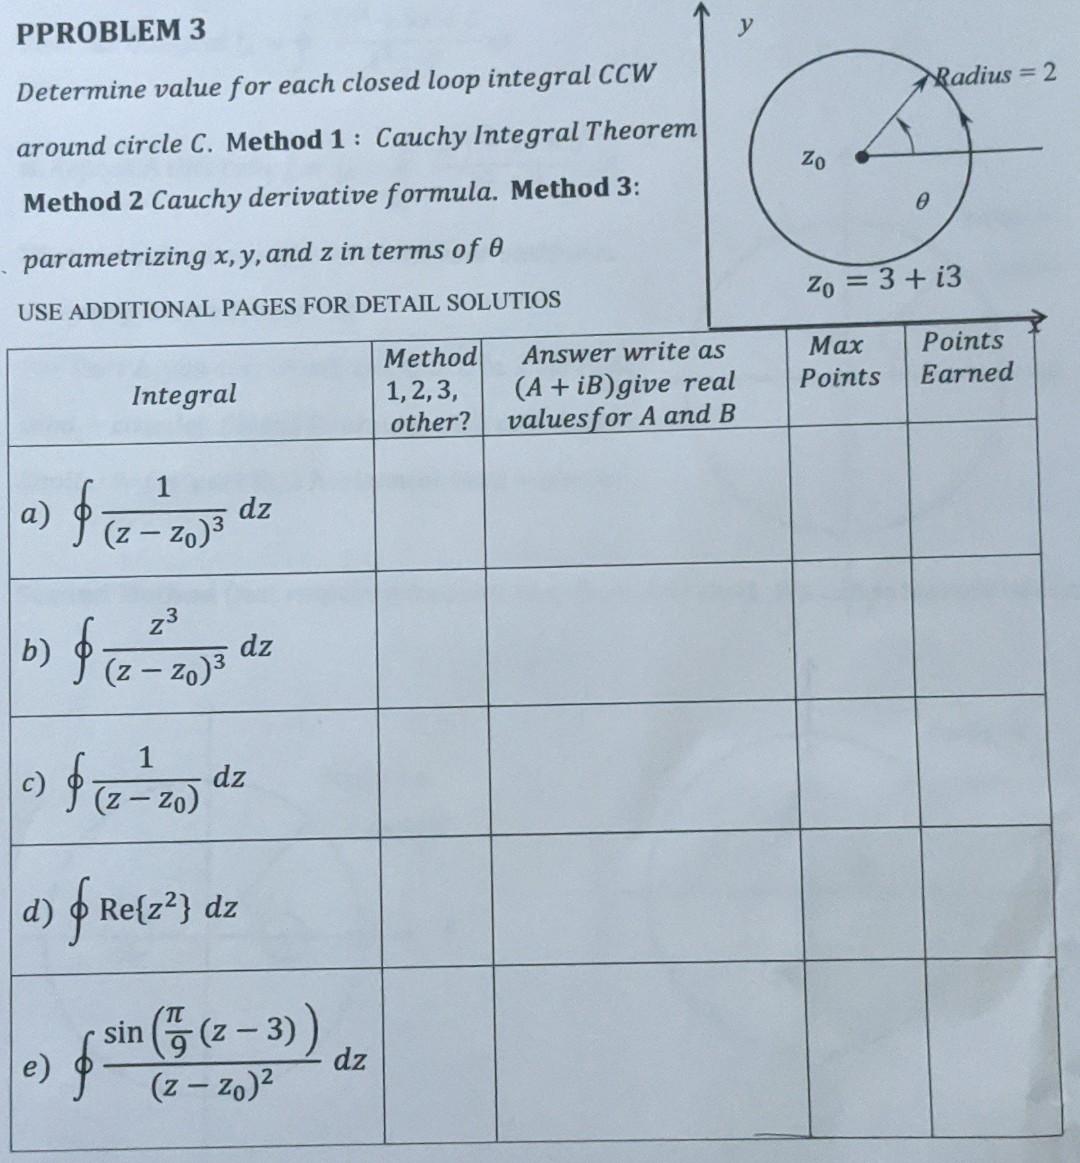 PPROBLEM 3
Determine value for each closed loop integral CCW
around circle C. Method 1 : Cauchy Integral Theorem
Method 2 Cauchy derivative formula. Method 3:
parametrizing x, y, and z in terms of θ
USE ADDITIONAL PAGES FOR DETAIL SOLUTIOS
y
Radius = 2
z₀
θ
z₀ = 3 + i3
x
Integral
Method
1, 2, 3,
other?
Answer write as
(A + iB)give real
valuesfor A and B
Max
Points
Points
Earned
a) ∮ 1/(z − z₀)³ dz
b) ∮ z³/(z − z₀)³ dz
c) ∮ 1/(z − z₀) dz
d) ∮ Re{z²} dz
e) ∮ sin(π/9 (z − 3))/(z − z₀)² dz